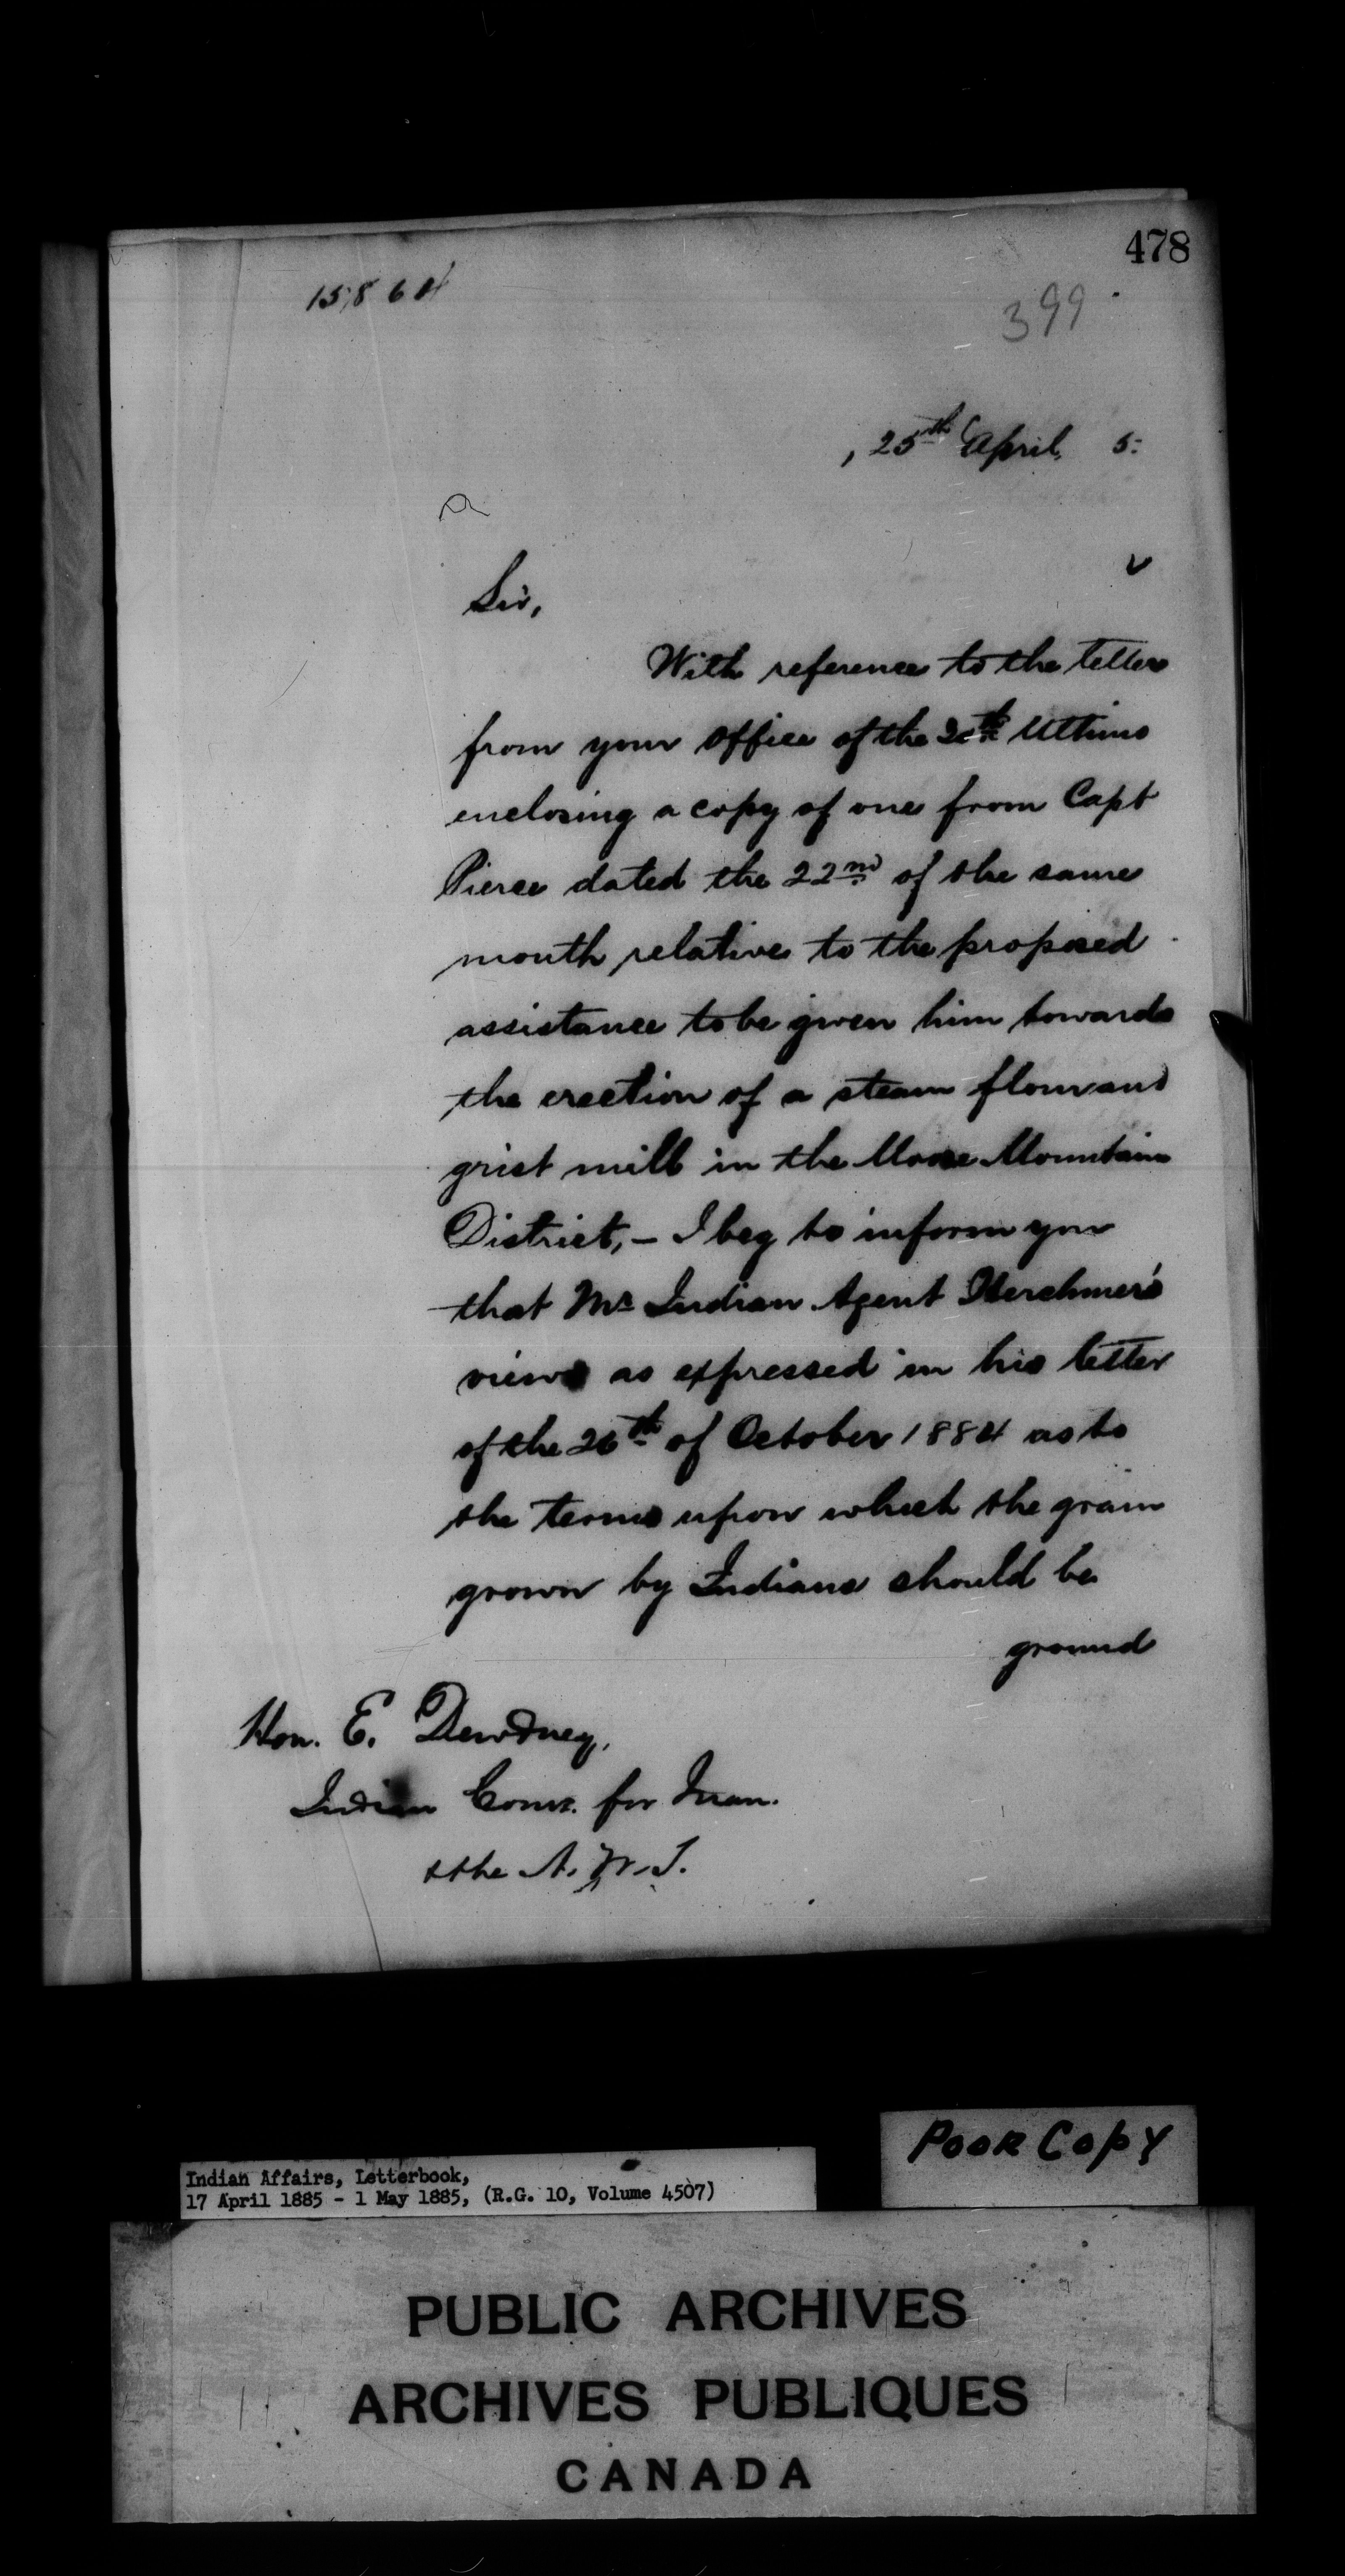 478
15,864
399
, 25th April, 5.
Sir,
With reference to the letter
from your office of the Ultimo
enclosing a copy of one from Capt
Pierce dated the 22nd of the same
month relative to the proposed
assistance to be given him towards
the erection of a steam flour and
grist mill in the Moose Mountain
District, – I beg to inform you
that Mr Indian Agent Herchmer's
views as expressed in his letter
of the 26th of October 1884 as to
the terms upon which the grain
grown by Indians should be
ground
Hon. E. Dewdney,
Indian Comr. for Man.
& the N. W. T.
Poor Copy
Indian Affairs, Letterbook,
17 April 1885 - 1 May 1885, (R.G. 10, Volume 4507)
PUBLIC ARCHIVES
ARCHIVES PUBLIQUES
CANADA